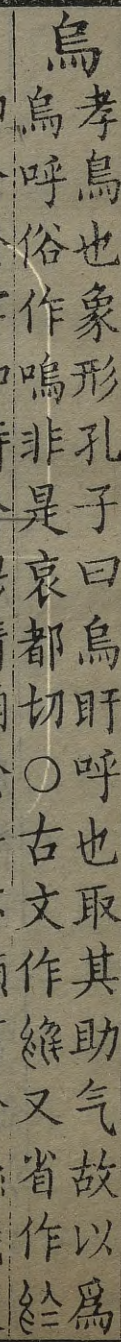 烏
孝鳥也象形孔子曰烏盱呼也取其助气故以爲
烏呼俗作嗚非是哀都切○古文作 又省作